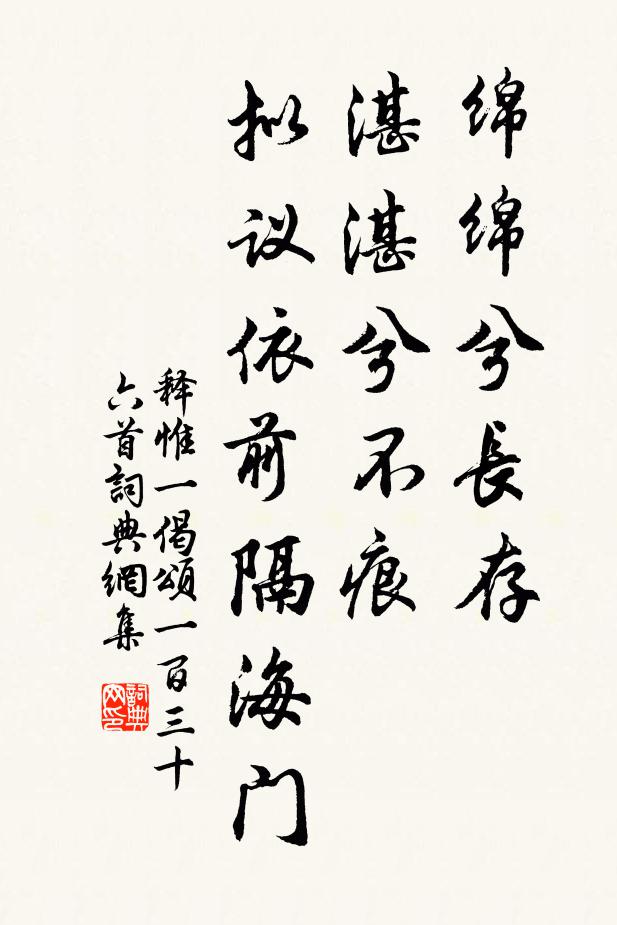 绵绵兮長存
湛湛兮不痕
拟议依前隔海门
释惟一偈頌一百三十
六首詞典網集
詞典
网印